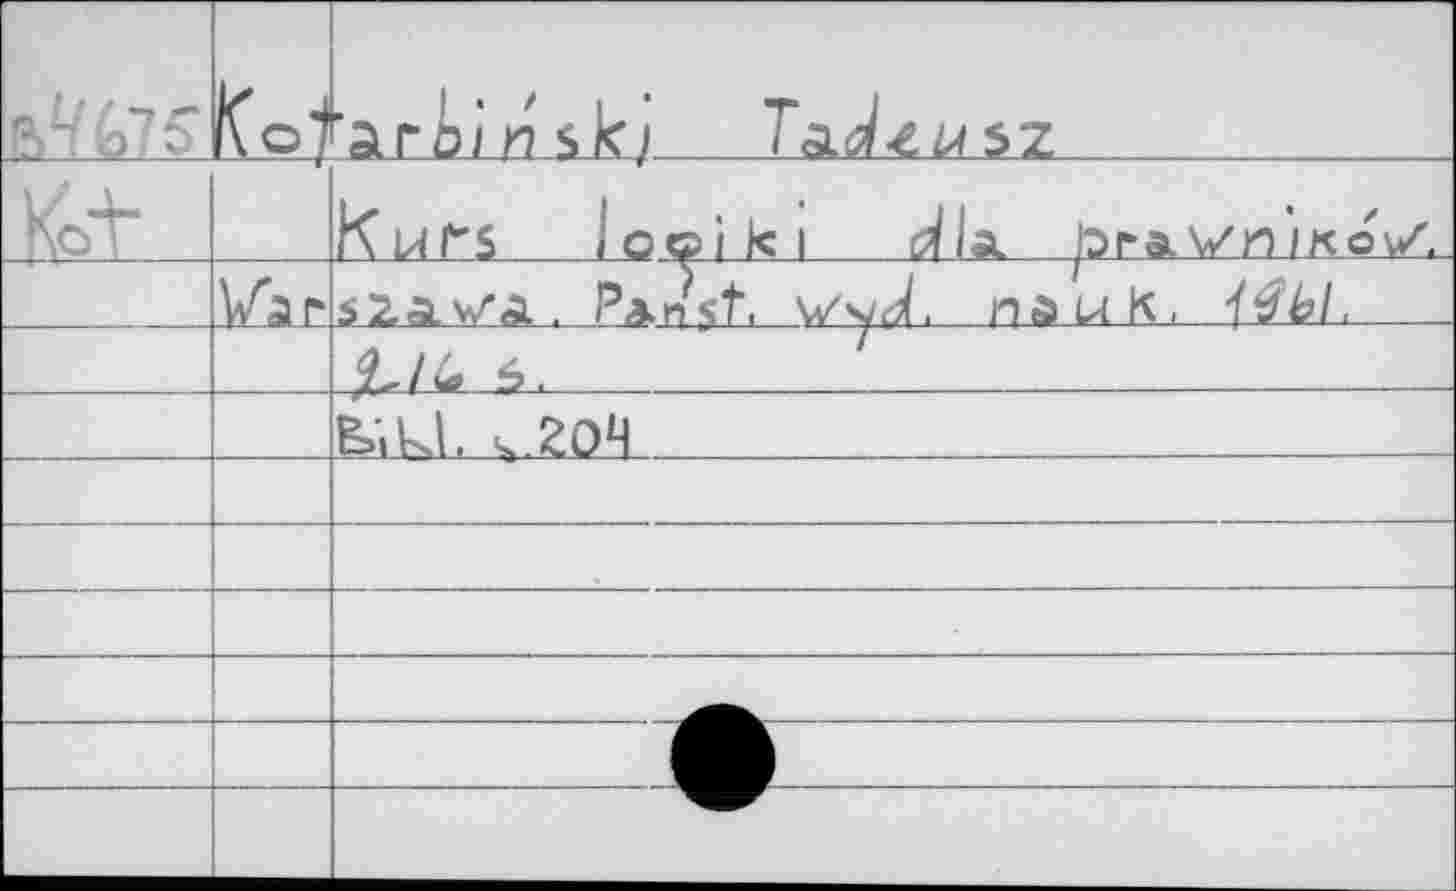 B4675 Kotarbiński Tadeusz
Kot Kurs logiki dla prawników.
Warszawa. Państ. Wyd. nauk. 1961.
216 s.
Bibl. s. 204